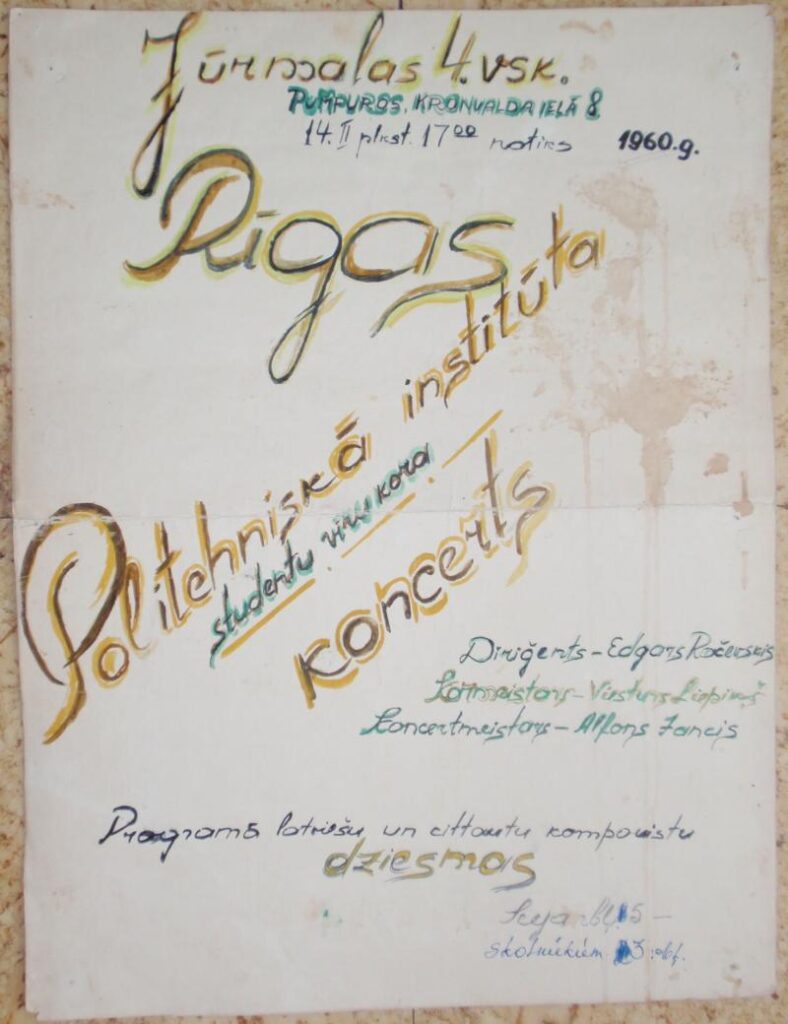 Jūrmalas 4. vsk.
PUMPUROS, KRONVALDA IELĀ 8
14. II plkst. 17⁰⁰ notiks 1960.g.
Rīgas
Politehniskā institūta
studentu vīru kora
koncerts
Diriģents – Edgars Račevskis
Kormeistars – Viesturs
Koncertmeistars – Alfons Zancis
Programā latviešu un cittautu komponistu
dziesmas
5 –
skolniekiem 3